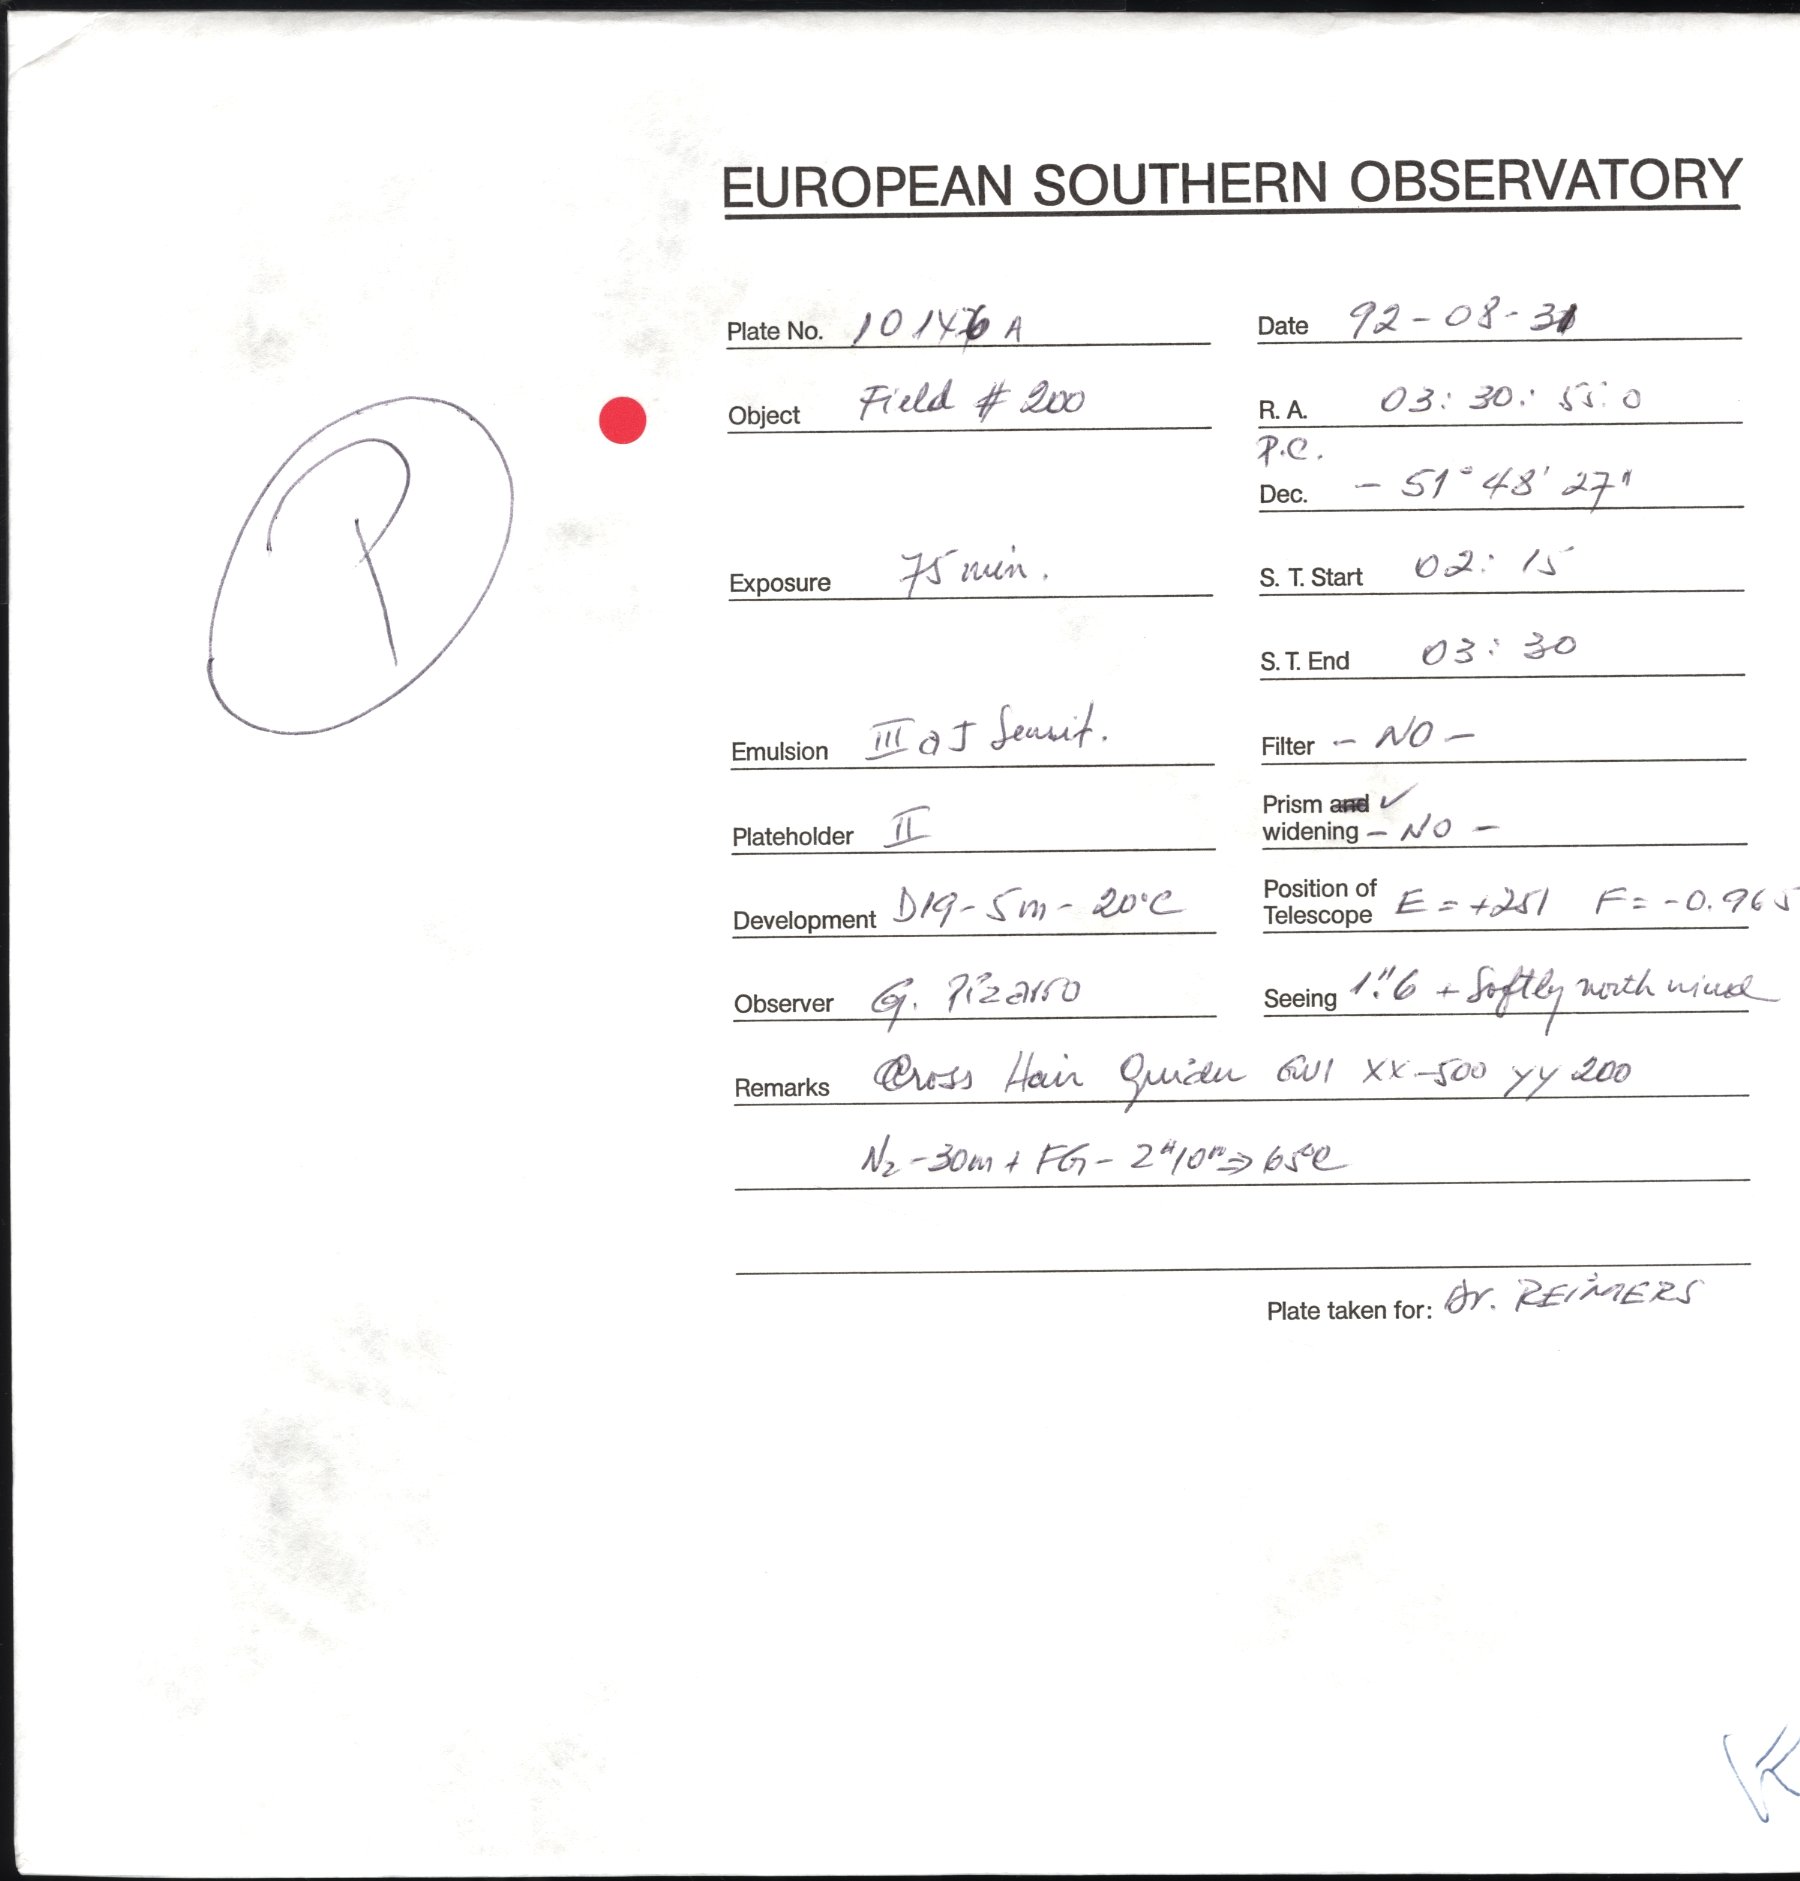 EUROPEAN SOUTHERN OBSERVATORY
Plate No. 10146 A
Date 92-08-31
Object Field # 200
R. A. 03: 30: 55: 0
P.C.
Dec. - 51° 48' 27"
P
Exposure 75 min.
S. T. Start 02: 15
S. T. End 03: 30
Emulsion III a J Sensit.
Filter - NO -
Prism and ✓
widening - NO -
Plateholder II
Development D19 - 5m - 20°C
Position of
Telescope E = +251 F = -0.965
Observer G. Pizarro
Seeing 1".6 + Softly north wind
Remarks Cross Hair Guider XX-500 yy 200
N2 - 30m + FG - 2H10m ⇒ 65°C
Plate taken for: Dr. REIMERS